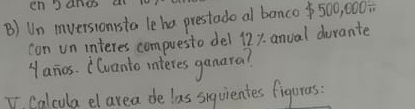 en 5 años al 10%
B) Un inversionista le ha prestado al banco $500,000=
con un interes compuesto del 12% anual durante
4 años. ¿Cuanto interes ganara?
V. Calcula el area de las siguientes figuras: